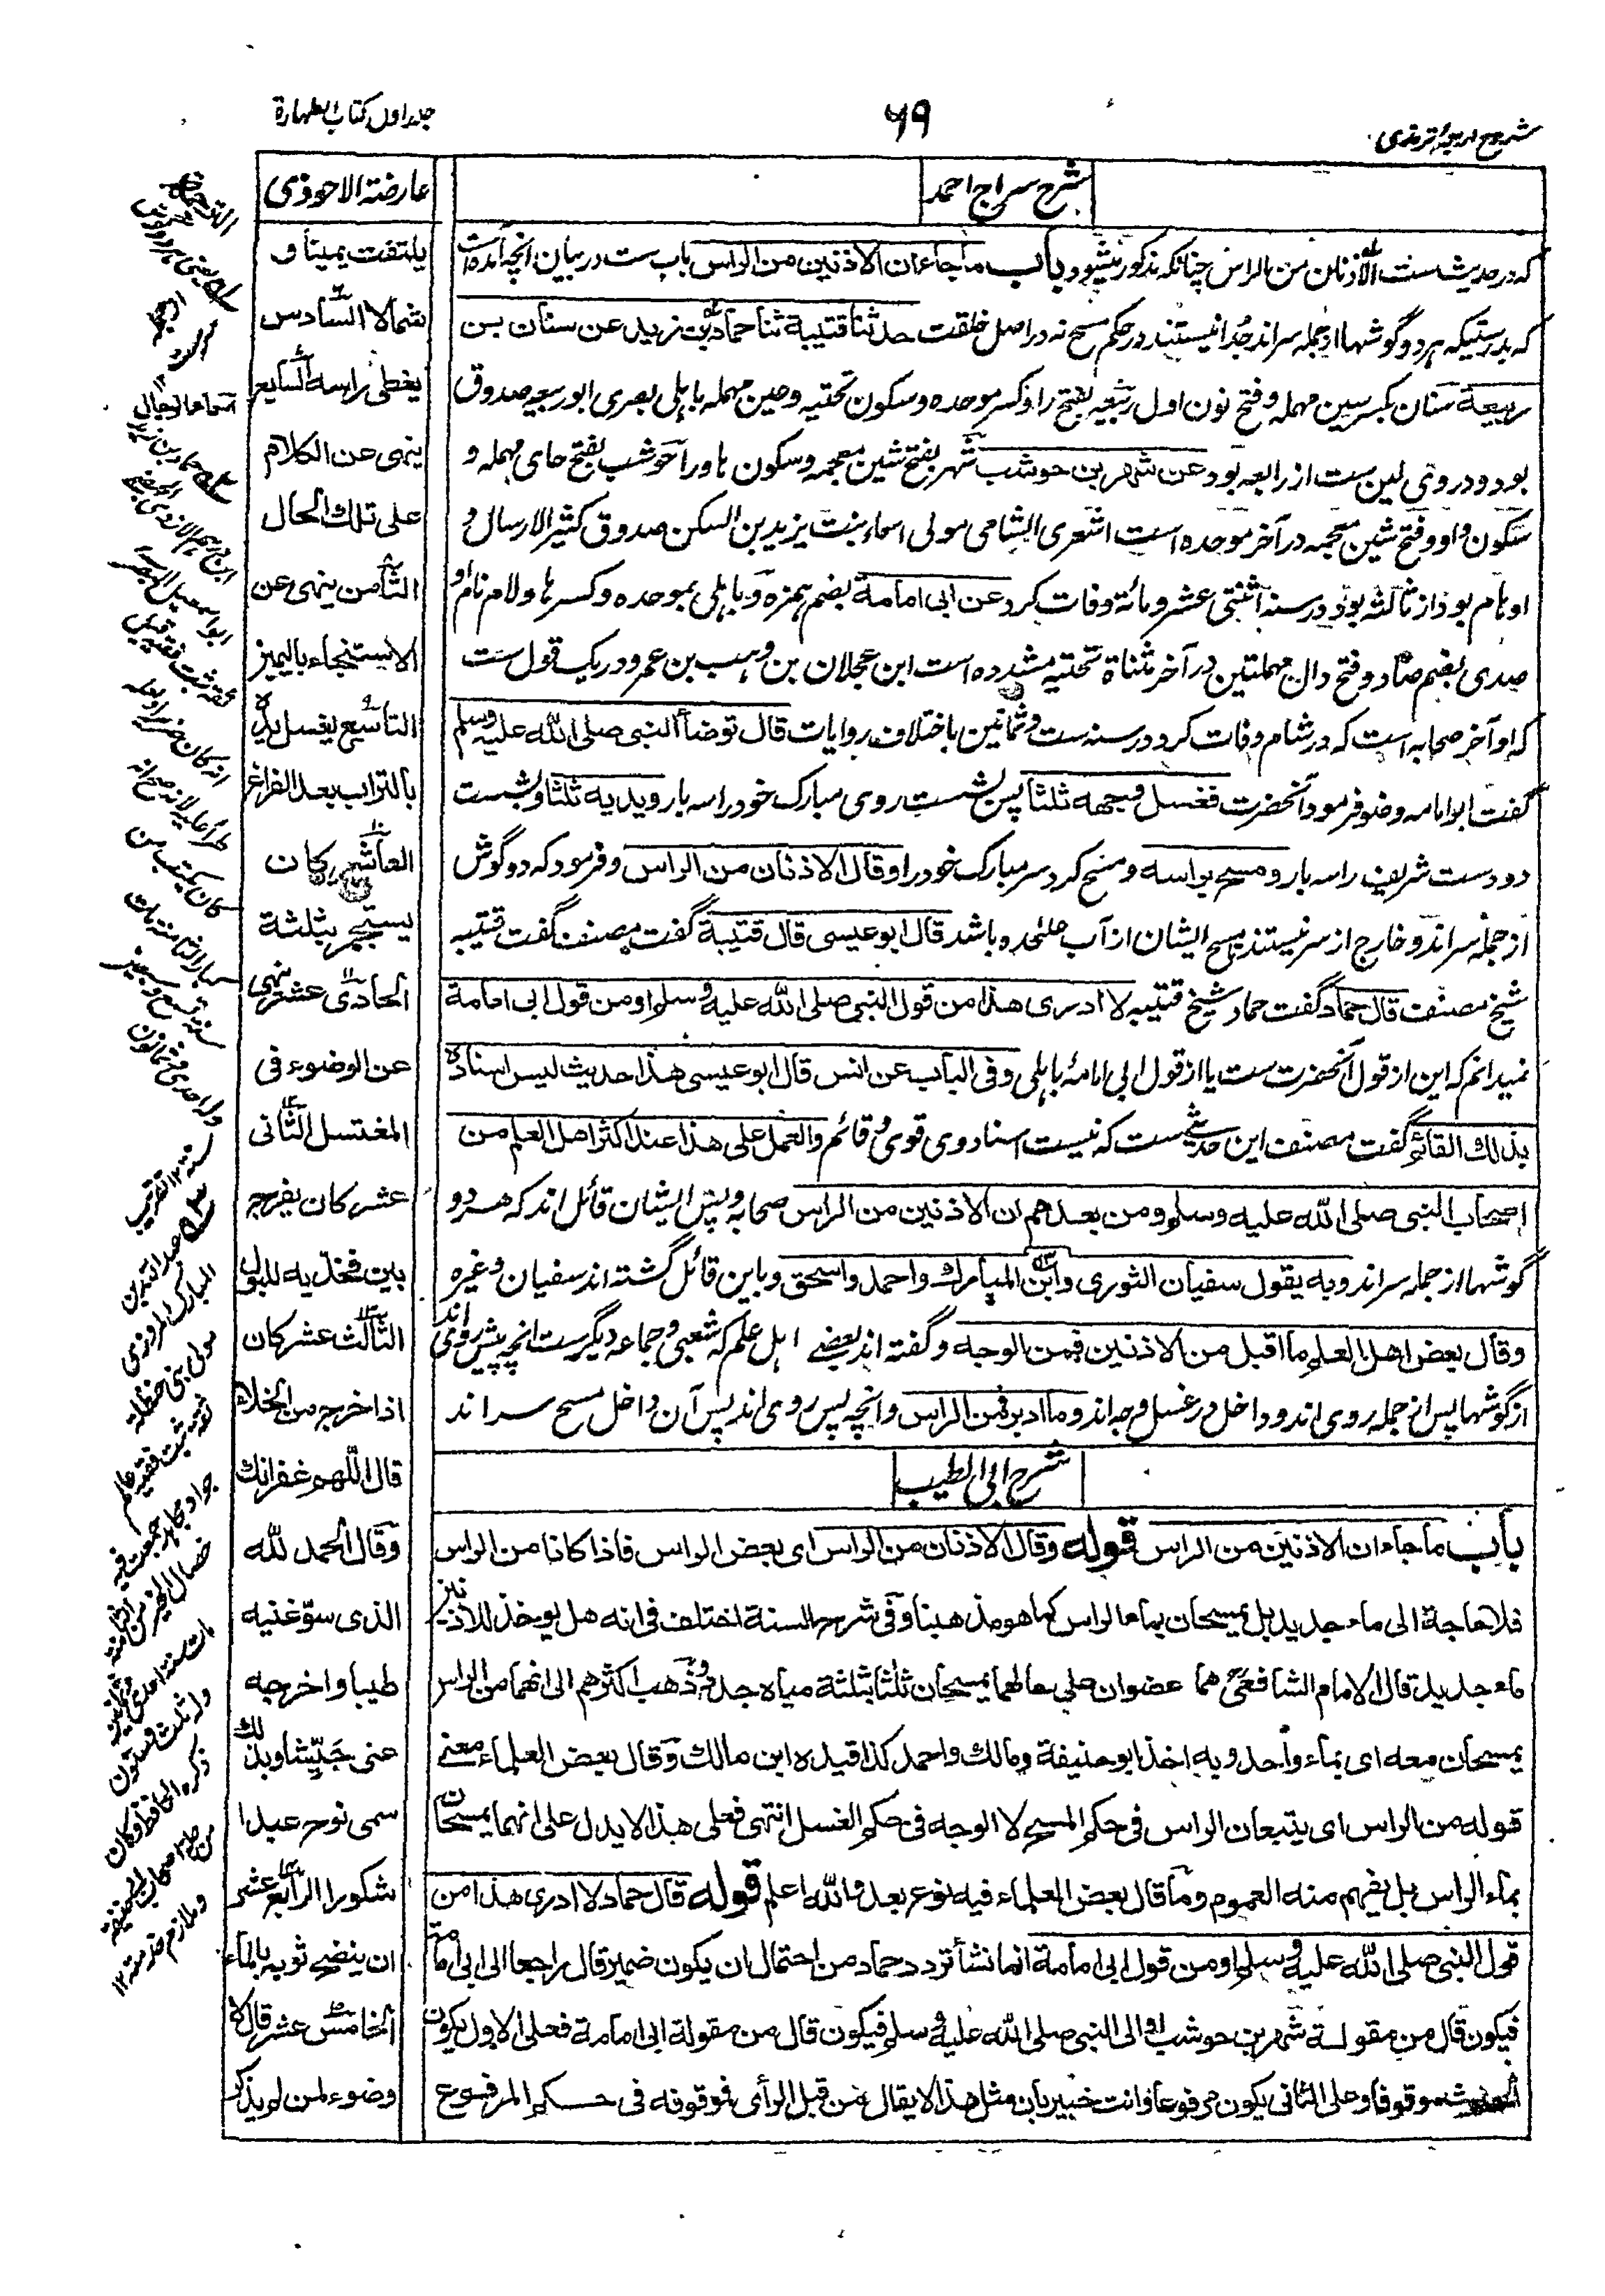 شروح اربعهٔ ترمذی
۶۹
جلد اول کتاب الطهارة
شرح سراج احمد
که در حدیث ست الاذنان من الراس چنانکه مذکور میشود باب ما جاء ان الاذنین من الراس باب ست در بیان انچه آمده است
که بدرستیکه هر دو گوشها از جمله سر اند جدا نیستند در حکم مسح نه در اصل خلقت حدثنا قتیبة ثنا حماد بن زید عن سنان بن
ربیعة سنان بکسر سین مهمله و فتح نون اول ربیعه بفتح را و کسر موحده و سکون تحتیه و عین مهمله باهلی بصری ابو ربیعه صدوق
بود و در وی لین ست از رابعه بود عن شهر بن حوشب شهر بفتح شین معجمه و سکون ها و را حوشب بفتح حای مهمله و
سکون واو و فتح شین معجمه در آخر موحده است اشعری الشامی مولی اسماء بنت یزید بن السکن صدوق کثیر الارسال و
اوهام بود از ثالثه بود در سنه اثنتی عشر و مائة وفات کرد عن ابی امامة بضم همزه و باهلی بموحده و کسر ها و لام نام او
صدی بضم صاد و فتح دال مهملتین در آخر مثناة تحتیه مشدده است ابن عجلان بن وهب بن عمرو در یک قول ست
که او آخر صحابه است که در شام وفات کرد در سنه ست و ثمانین باختلاف روایات قال توضأ النبی صلی الله علیه وسلم
گفت ابو امامه وضو فرمود آنحضرت فغسل وجهه ثلثا پس بشست روی مبارک خود را سه بار و یدیه ثلثا و بشست
دو دست شریف را سه بار و مسح براسه و مسح کرد سر مبارک خود را و قال الاذنان من الراس و فرمود که دو گوش
از جمله سر اند و خارج از سر نیستند مسح ایشان از آب علیحده باشد قال ابو عیسی قال قتیبة گفت مصنف گفت قتیبه
شیخ مصنف قال حماد گفت حماد شیخ قتیبه لا ادری هذا من قول النبی صلی الله علیه وسلم او من قول ابی امامة
نمیدانم که این از قول آنحضرت ست یا از قول ابی امامهٔ باهلی و فی الباب عن انس قال ابو عیسی هذا حدیث لیس اسناده
بذلک القائم گفت مصنف این حدیث ست که نیست اسناد وی قوی و قائم والعمل علی هذا عند اکثر اهل العلم من
اصحاب النبی صلی الله علیه وسلم و من بعدهم ان الاذنین من الراس صحابه و پس ایشان قائل اند که هر دو
گوشها از جمله سر اند و به یقول سفیان الثوری وابن المبارک واحمد واسحق و باین قائل گشته اند سفیان و غیره
وقال بعض اهل العلم ما اقبل من الاذنین فمن الوجه و گفته اند بعضے اهل علم که شعبی و جماعه دیگر ست انچه پیش روی اند
از گوشها پس از جمله روی اند و داخل در غسل وجه اند وما ادبر فمن الراس و انچه پس روی اند پس آن داخل مسح سر اند
شرح ابی الطیب
باب ما جاء ان الاذنین من الراس قوله وقال الاذنان من الراس ای بعض الراس فاذا کانا من الراس
فلا حاجة الی ماء جدید بل یمسحان بماء الراس کما هو مذهبنا وفی شرح السنة اختلف فی انه هل یوخذ للاذنین
ماء جدید قال الامام الشافعی هما عضوان علی حالهما یمسحان ثلثا بثلثة میاه جدد وذهب اکثرهم الی انهما من الراس
یمسحان معه ای بماء واحد وبه اخذ ابو حنیفة ومالک واحمد کذا قیده ابن مالک وقال بعض العلماء معنے
قوله من الراس ای یتبعان الراس فی حکم المسح لا الوجه فی حکم الغسل انتهی فعلی هذا لا یدل علی انهما یمسحان
بماء الراس بل یفهم منه العموم وما قال بعض العلماء فیه نوع بعد والله اعلم قوله قال حماد لا ادری هذا من
قول النبی صلی الله علیه وسلم او من قول ابی امامة انما نشأ تردد حماد من احتمال ان یکون ضمیر قال راجعا الی ابی امامة
فیکون قال من مقولة شهر بن حوشب او الی النبی صلی الله علیه وسلم فیکون قال من مقولة ابی امامة فعلی الاول یکون
الحدیث موقوفا وعلی الثانی یکون مرفوعا وانت خبیر بان مثل هذا لا یقال من قبل الرأی فموقوفه فی حکم المرفوع
عارضة الاحوذی
یلتفت یمینا و
شمالا السادس
یغطی راسه السابع
ینهی عن الکلام
علی تلک الحال
الثامن ینهی عن
الاستنجاء بالیمین
التاسع یغسل یده
بالتراب بعد الفراغ
العاشر کان
یستجمر بثلثة
الحادی عشر نهی
عن الوضوء فی
المغتسل الثانی
عشر کان یفرج
بین فخذیه للبول
الثالث عشر کان
اذا خرج من الخلاء
قال اللهم غفرانک
وقال الحمد لله
الذی سوغنیه
طیبا واخرجه
عنی خبیثا وبذلک
سمی نوح عبدا
شکورا الرابع عشر
ان ینضح ثوبه بالماء
الخامس عشر قال لا
وضوء لمن لم یذکر
اسماء الرجال
حماد بن زید
ابن درهم الازدی الجهضمی
ابو اسمعیل البصری
ثقة ثبت فقیه قیل
انه کان ضریرا ولعله
طرأ علیه لانه صح انه
کان یکتب من
کبار الثامنة مات
سنة تسع وسبعین
وله احدی وثمانون
سنة ۱۲ تقریب
عبد الله بن
المبارک المروزی
مولی بنی حنظلة
ثقة ثبت فقیه عالم
جواد مجاهد جمعت فیه
خصال الخیر من الثامنة
مات سنة احدی وثمانین
وله ثلث وستون
ذکره الحافظ وکان
من اصحاب ابی حنیفة